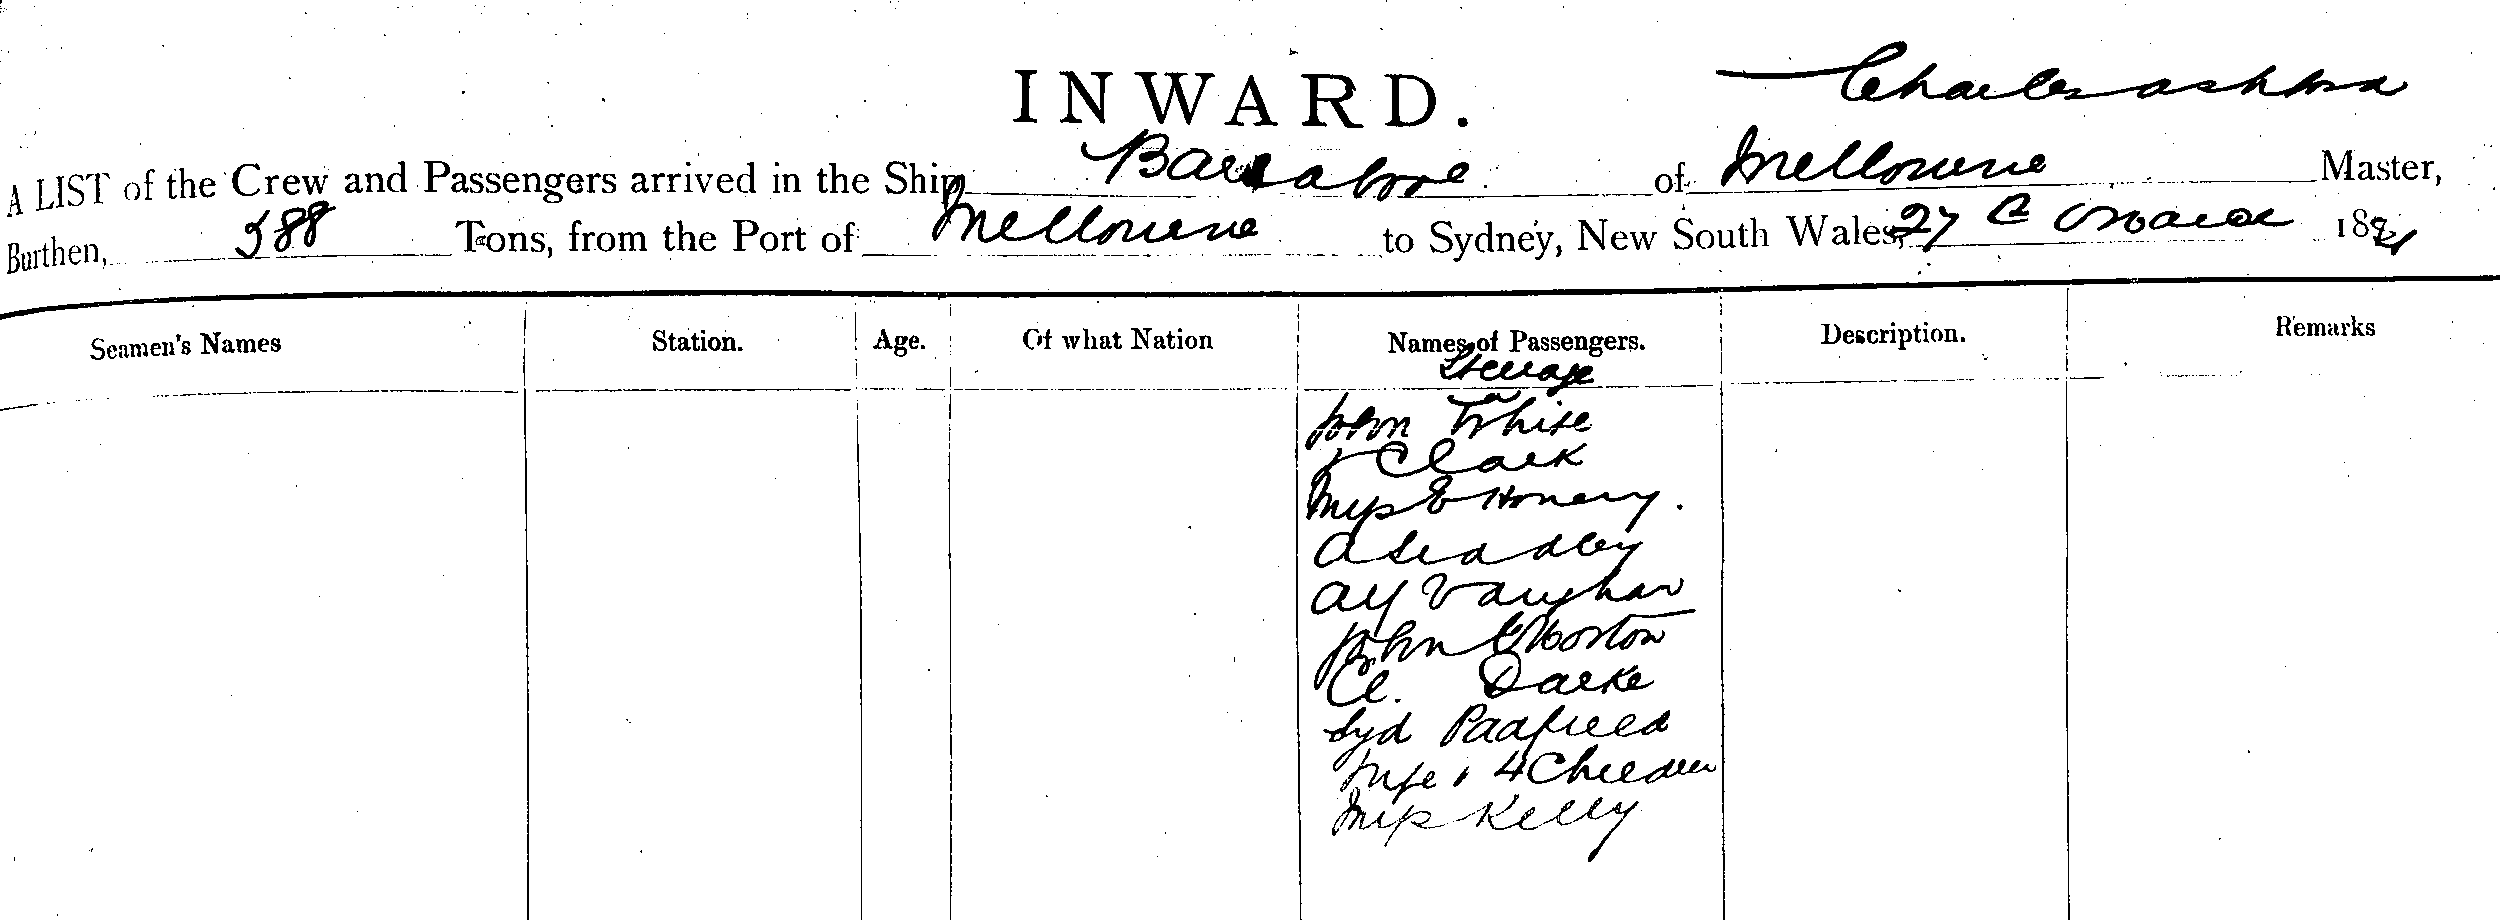 INWARD.
Charles Ashford
A LIST of the Crew and Passengers arrived in the Ship Barrabool of Melbourne Master,
Burthen, 588 Tons, from the Port of Melbourne to Sydney, New South Wales, 27 March 189
Seamen's Names Station. Age. Of what Nation Names of Passengers. Description. Remarks
Steerage
John White
J Clark
Miss E Honery.
A
Alf Vaughan
John Horton
Cl. Darke
Syd Padfield
Wife & 4 Children
Miss Kelly